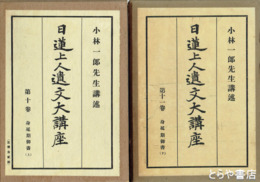 小林一郎先生講述
日蓮上人遺文大講座
第十卷 身延期御書（上）
小林一郎先生講述
日蓮上人遺文大講座
第十一卷 身延期御書（下）
とらや書店